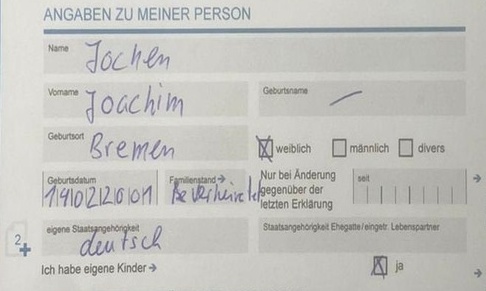 ANGABEN ZU MEINER PERSON
Name
Jochen
Vorname Geburtsname
Joachim —
Geburtsort
Bremen ☒ weiblich ☐ männlich ☐ divers
Geburtsdatum Familienstand → Nur bei Änderung gegenüber der letzten Erklärung seit →
14022001
eigene Staatsangehörigkeit Staatsangehörigkeit Ehegatte/eingetr. Lebenspartner
2+ deutsch
Ich habe eigene Kinder → ☒ ja →